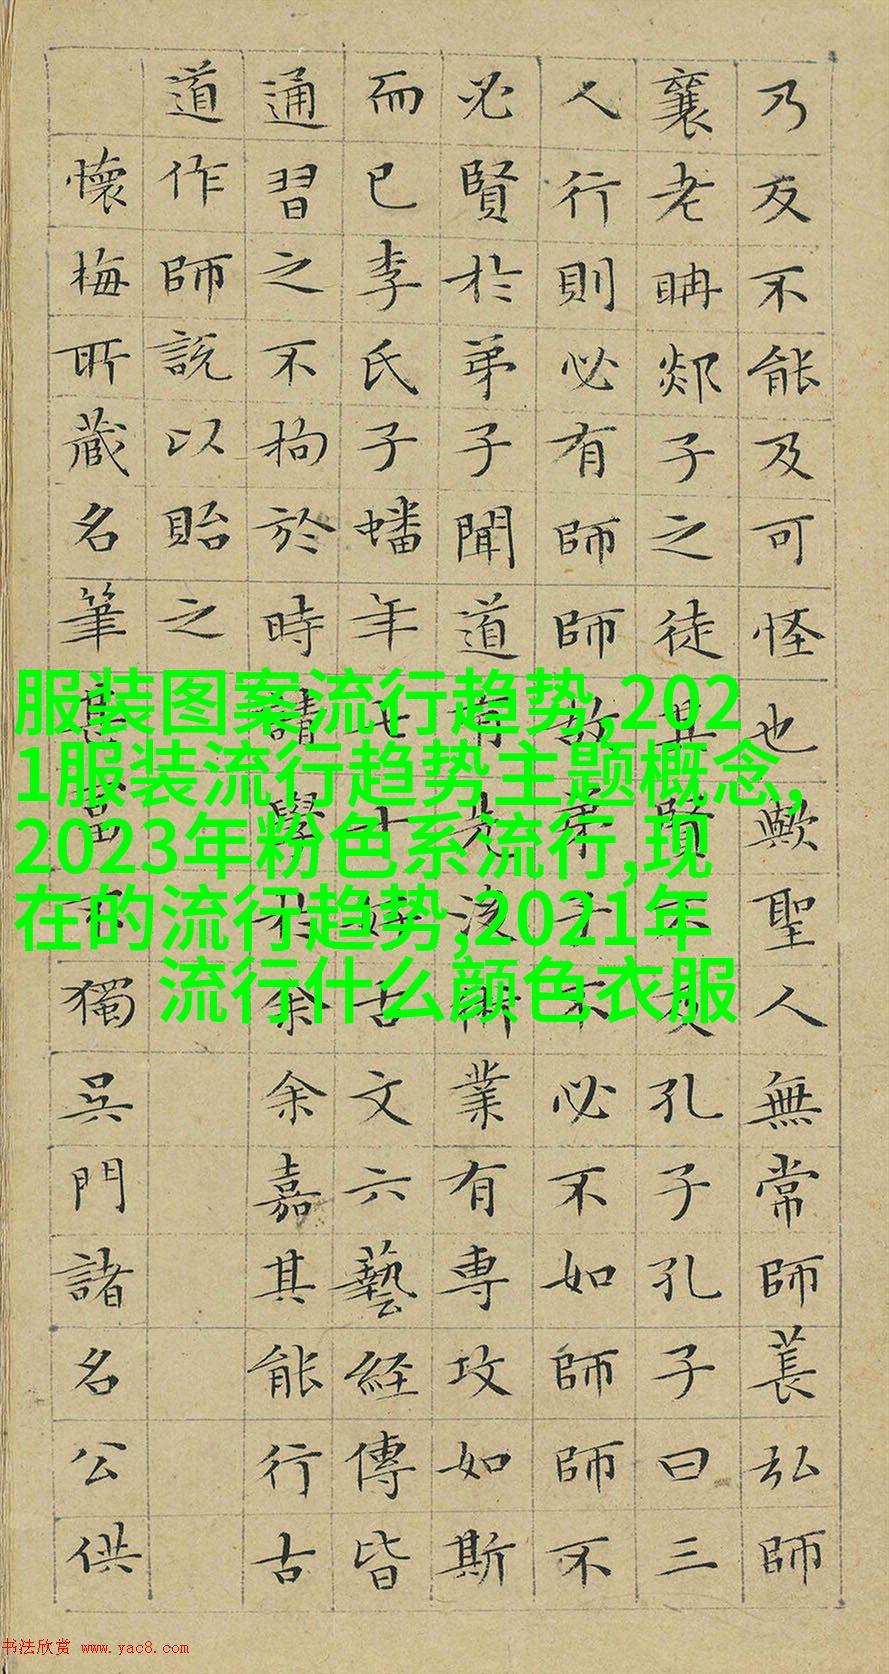 乃反不能及可怪也歟聖人無常師萇弘師
襄老聃郯子之徒其賢不及孔子孔子曰三
人行則必有師師故弟子不必不如師師不
必賢於弟子聞道有先後術業有專攻如斯
而已李氏子蟠年七十好古文六藝經傳皆
通習之不拘於時請學於余余嘉其能行古
道作師說以貽之
懷梅所藏名筆甚富不獨吳門諸名公供
服装图案流行趋势,202
1服装流行趋势主题概念,
2023年粉色系流行,现
在的流行趋势,2021年
流行什么颜色衣服
书法欣赏 www.yac8.com